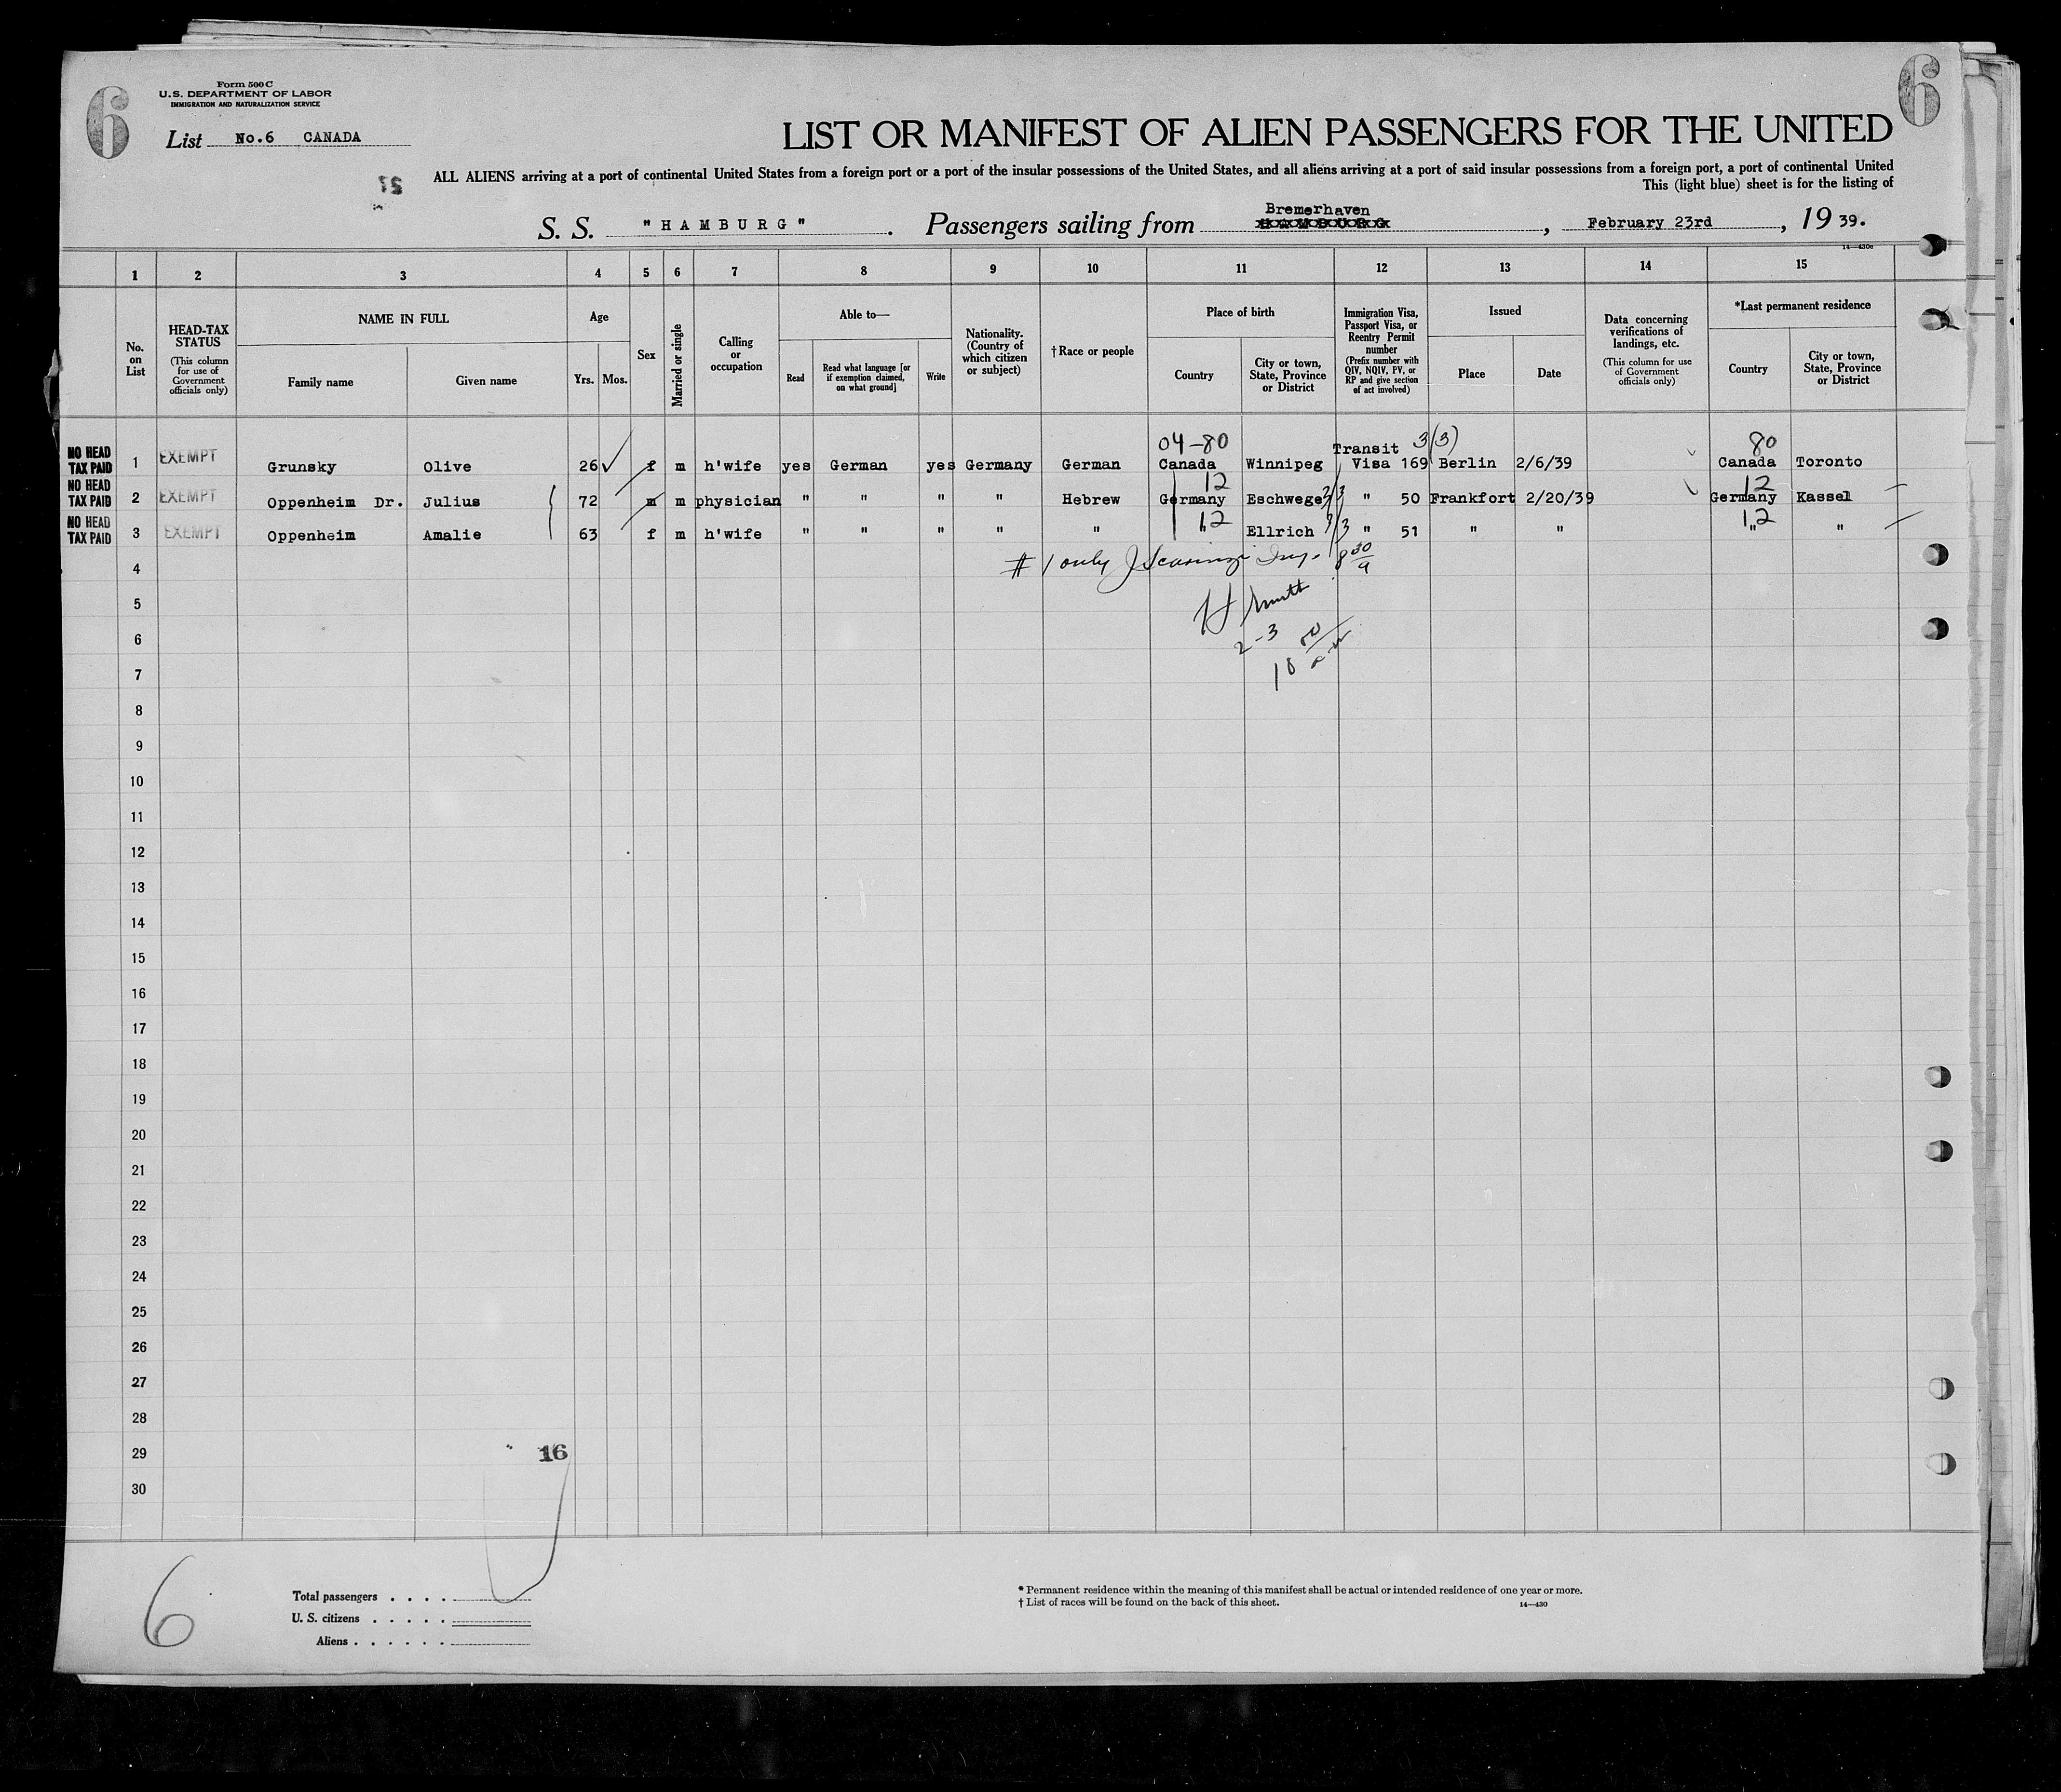 6
6
Form 500 C
U.S. DEPARTMENT OF LABOR
IMMIGRATION AND NATURALIZATION SERVICE
List No.6 CANADA
LIST OR MANIFEST OF ALIEN PASSENGERS FOR THE UNITED
ALL ALIENS arriving at a port of continental United States from a foreign port or a port of the insular possessions of the United States, and all aliens arriving at a port of said insular possessions from a foreign port, a port of continental United
This (light blue) sheet is for the listing of
Bremerhaven
S. S. "HAMBURG". Passengers sailing from HAMBURG, February 23rd, 19 39.
14—430c
1 2 3 4 5 6 7 8 9 10 11 12 13 14 15
No. on List
HEAD-TAX STATUS (This column for use of Government officials only)
NAME IN FULL
Family name Given name
Age
Yrs. Mos.
Sex
Married or single
Calling or occupation
Able to—
Read Read what language [or if exemption claimed, on what ground] Write
Nationality. (Country of which citizen or subject)
†Race or people
Place of birth
Country City or town, State, Province or District
Immigration Visa, Passport Visa, or Reentry Permit number (Prefix number with QIV, NQIV, PV, or RP and give section of act involved)
Issued
Place Date
Data concerning verifications of landings, etc. (This column for use of Government officials only)
*Last permanent residence
Country City or town, State, Province or District
04-80 Transit 3(3) 80
NO HEAD TAX PAID 1 EXEMPT Grunsky Olive 26 f m h'wife yes German yes Germany German Canada Winnipeg Visa 169 Berlin 2/6/39 Canada Toronto
12 12
NO HEAD TAX PAID 2 EXEMPT Oppenheim Dr. Julius 72 m m physician " " " " Hebrew Germany Eschwege 3/3 " 50 Frankfort 2/20/39 Germany Kassel
12 12
NO HEAD TAX PAID 3 EXEMPT Oppenheim Amalie 63 f m h'wife " " " " " " Ellrich 3/3 " 51 " " " "
4 # 1 only Insp. 8 30/a
5
6 2-3
7 10
8
9
10
11
12
13
14
15
16
17
18
19
20
21
22
23
24
25
26
27
28
29 16
30
6
Total passengers . . . .
U. S. citizens . . . . .
Aliens . . . . . .
* Permanent residence within the meaning of this manifest shall be actual or intended residence of one year or more.
† List of races will be found on the back of this sheet. 14—430